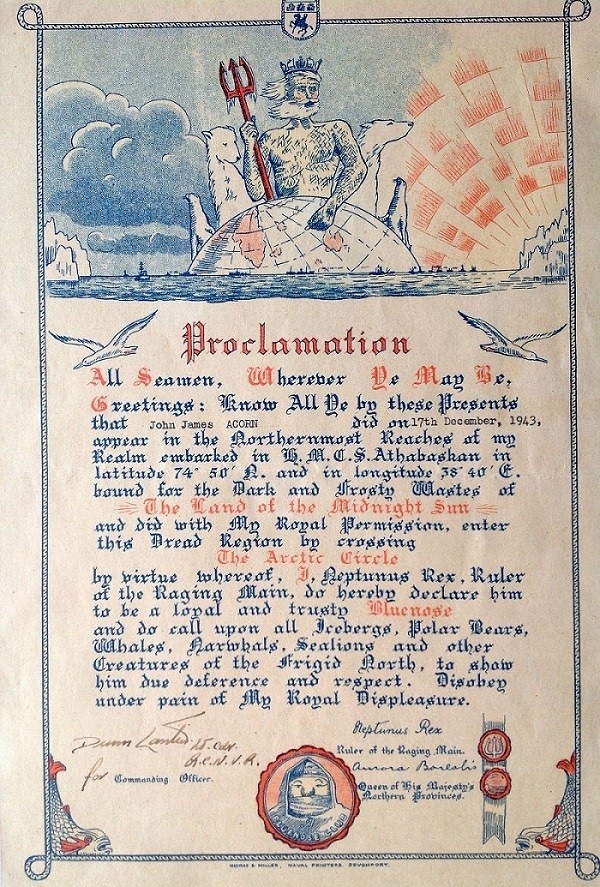 Proclamation
All Seamen, Wherever Ye May Be,
Greetings: Know All Ye by these Presents
that John James ACORN did on 17th December, 1943,
appear in the Northernmost Reaches of my
Realm embarked in H.M.C.S. Athabaskan in
latitude 74° 50' N. and in longitude 38° 40' E.
bound for the Dark and Frosty Wastes of
The Land of the Midnight Sun
and did with My Royal Permission, enter
this Dread Region by crossing
The Arctic Circle
by virtue whereof, I, Neptunus Rex, Ruler
of the Raging Main, do hereby declare him
to be a loyal and trusty Bluenose
and do call upon all Icebergs, Polar Bears,
Whales, Narwhals, Sealions and other
Creatures of the Frigid North, to show
him due deference and respect. Disobey
under pain of My Royal Displeasure.
Dunn Lt. Cdr.
R.C.N.V.R.
for Commanding Officer.
Neptunus Rex
Ruler of the Raging Main.
Aurora Borealis
Queen of His Majesty's
Northern Provinces.
& MILLER, NAVAL PRINTERS, DEVONPORT.